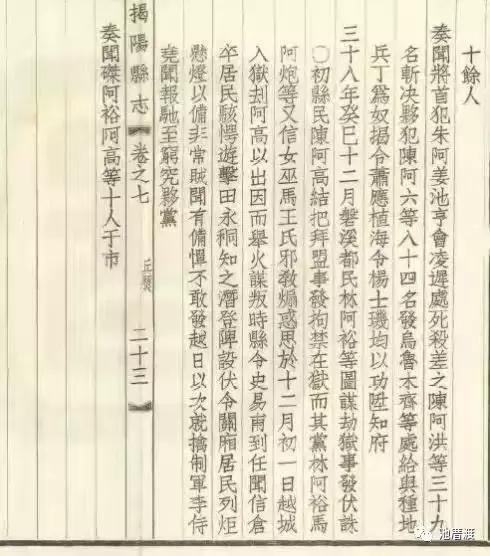 十餘人
奏聞將首犯朱阿姜池亨會凌遲處死殺差之陳阿洪等三十九
名斬决夥犯陳阿六等八十四名發烏魯木齊等處給與種地
兵丁為奴揭令蕭應植海令楊士璣均以功陞知府
三十八年癸巳十二月磐溪都民林阿裕等圖謀劫獄事發伏誅
○初縣民陳阿高結把拜盟事發拘禁在獄而其黨林阿裕馬
阿炮等又信女巫馬王氏邪敎煽惑思於十二月初一日越城
入獄刦阿高以出因而舉火謀叛時縣令史易甫到任聞信倉
卒居民駭愕遊擊田永秱知之潛登陴設伏令關廂居民列炬
懸燈以備非常賊聞有備懼不敢發越日以次就擒制軍李侍
堯聞報馳至窮究夥黨
揭陽縣志 卷之七 丘襲 二十三
奏聞磔阿裕阿高等十人于市
池厝渡